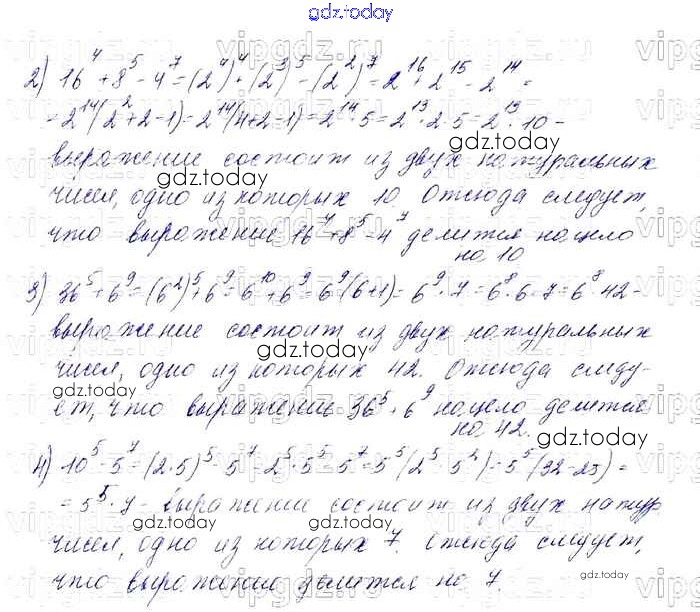 gdz.today
2) 16^4 + 8^5 - 4^7 = (2^4)^4 + (2^3)^5 - (2^2)^7 = 2^16 + 2^15 - 2^14 =
= 2^14(2^2+2-1) = 2^14(4+2-1) = 2^14 · 5 = 2^13 · 2 · 5 = 2^13 · 10 -
выражение состоит из двух натуральных
gdz.today
чисел, одно из которых 10. Отсюда следует,
что выражение 16^4 + 8^5 - 4^7 делится нацело
на 10
3) 36^5 + 6^9 = (6^2)^5 + 6^9 = 6^10 + 6^9 = 6^9(6+1) = 6^9 · 7 = 6^8 · 6 · 7 = 6^8 · 42 -
выражение состоит из двух натуральных
gdz.today
чисел, одно из которых 42. Отсюда следу-
ет, что выражение 36^5 + 6^9 нацело делится
на 42.
gdz.today
4) 10^5 - 5^7 = (2·5)^5 - 5^7 = 2^5 · 5^5 - 5^7 = 5^5(2^5 - 5^2) = 5^5(32-25) =
= 5^5 · 7 - выражение состоит из двух натур
gdz.today
чисел, одно из которых 7. Отсюда следует,
что выражение делится на 7.
gdz.today